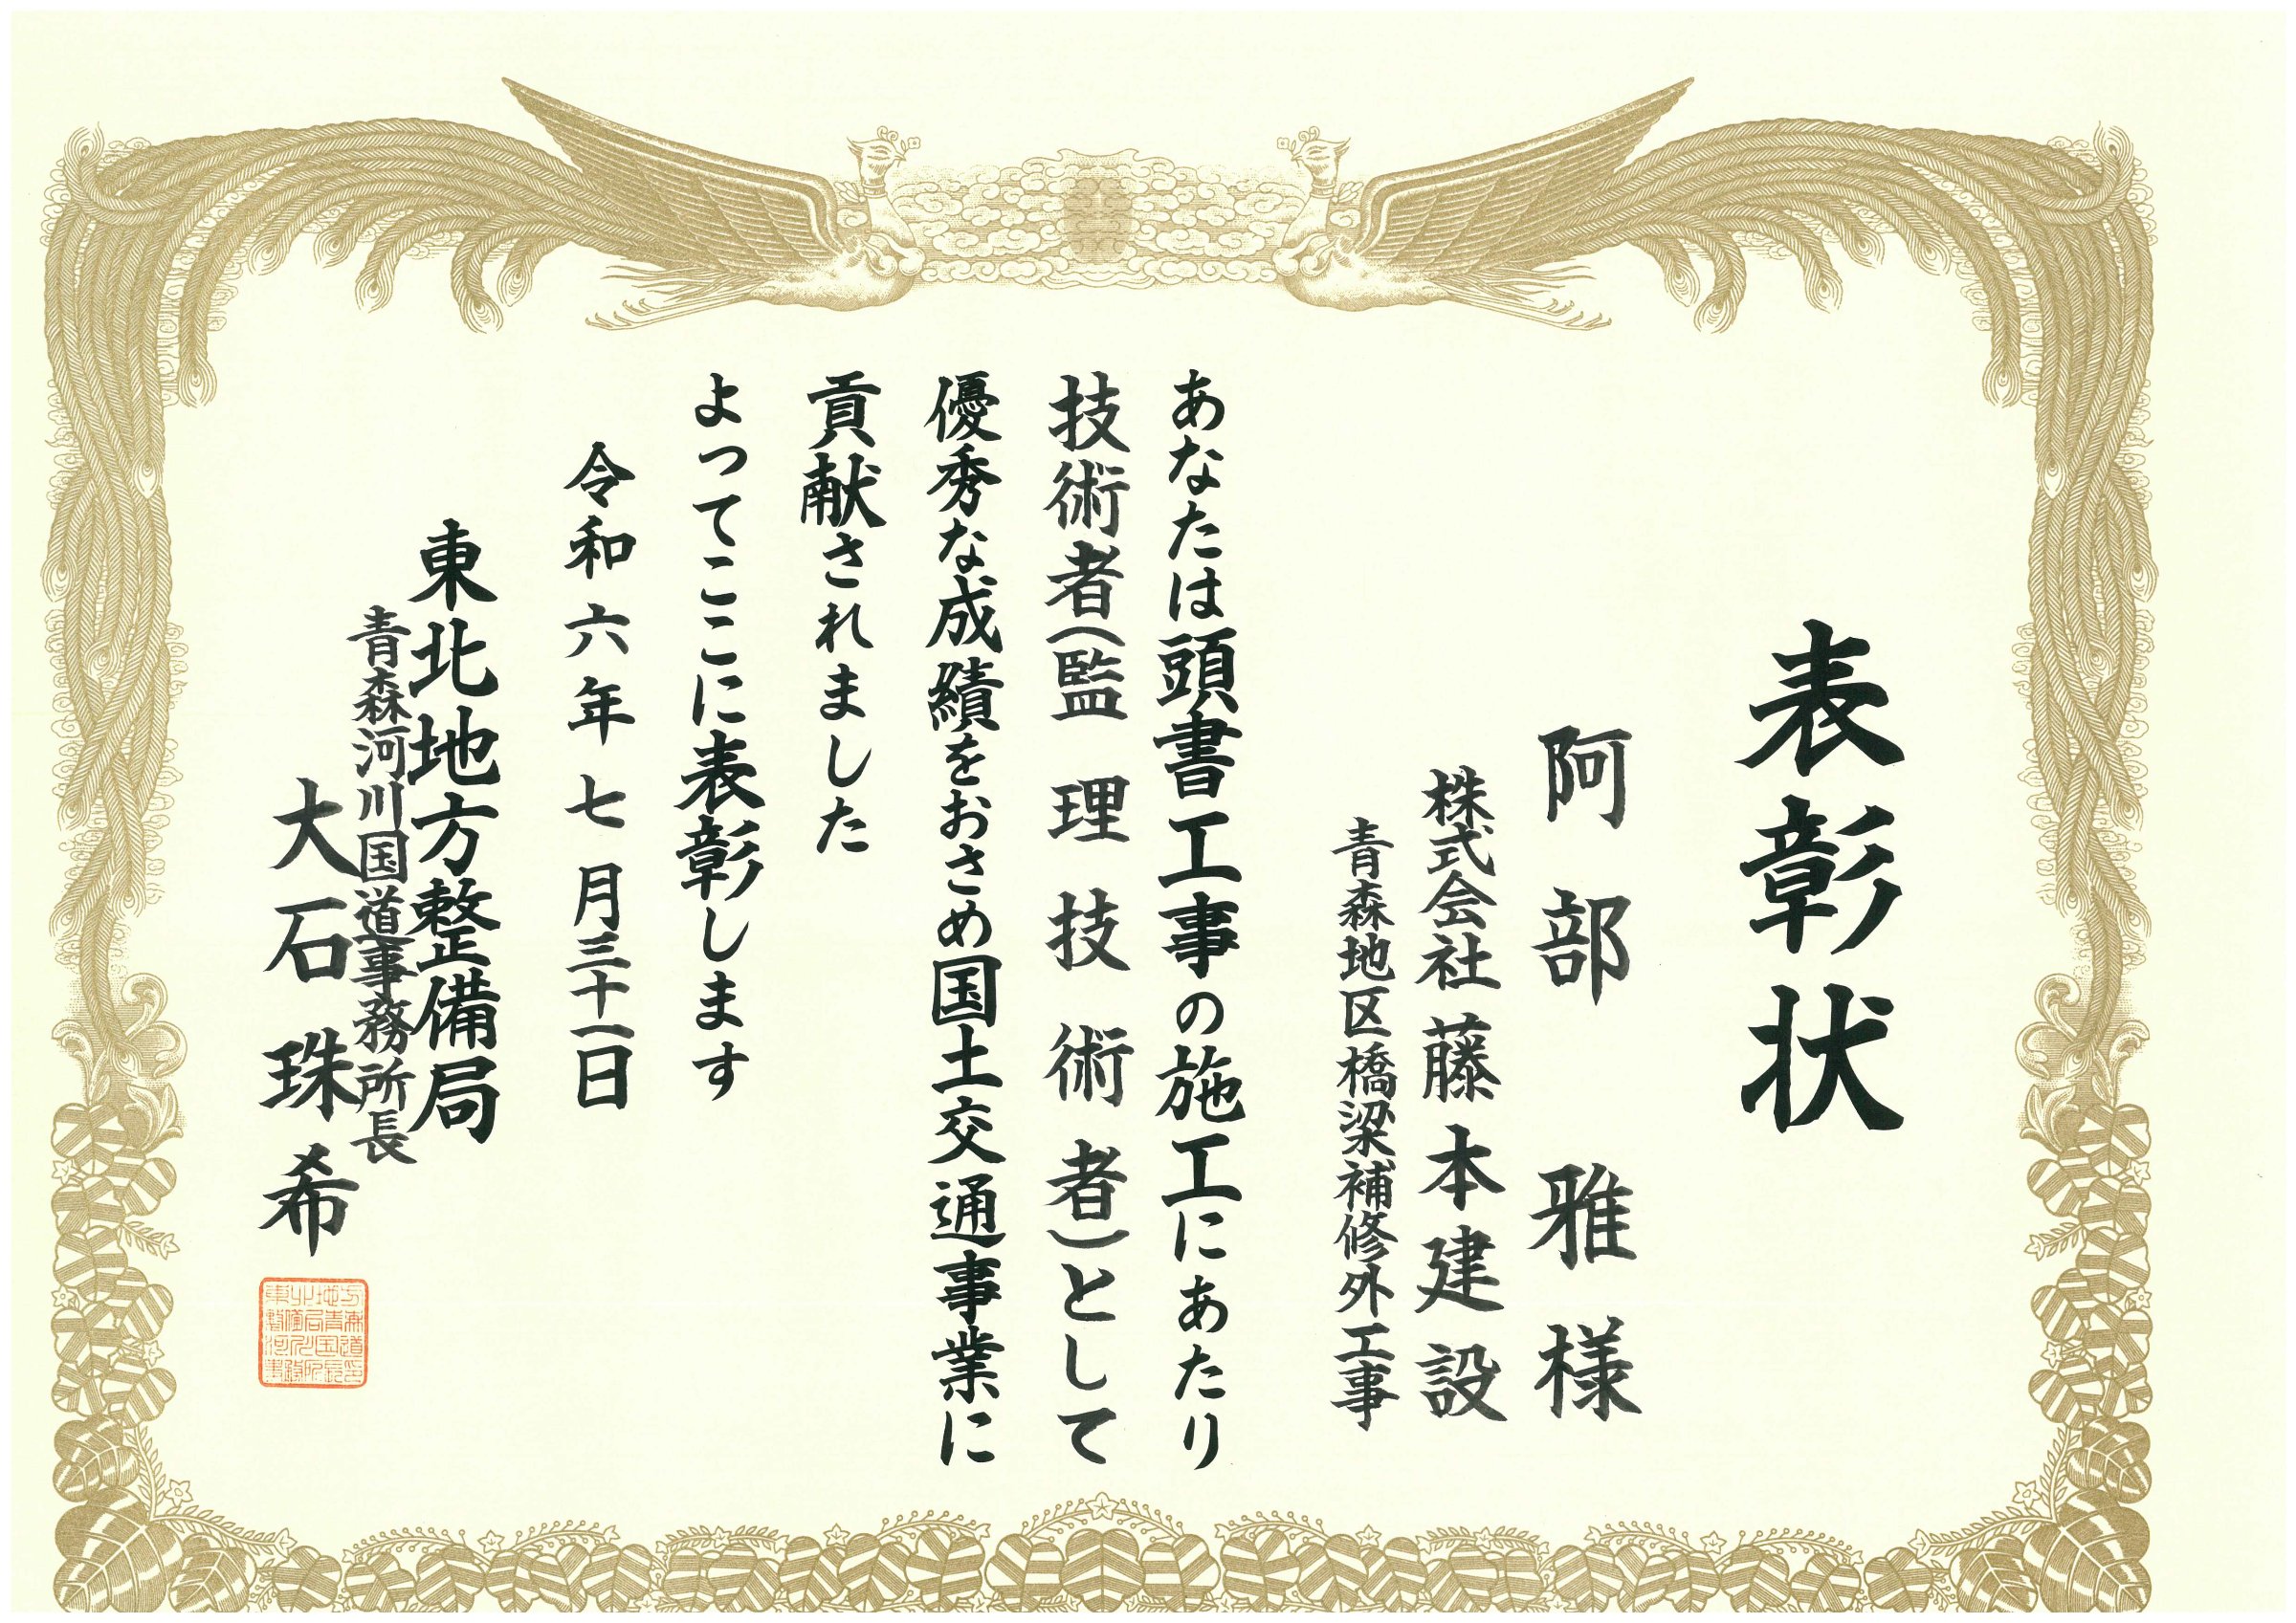 表彰状
阿部 雅 様
株式会社 藤本建設
青森地区橋梁補修外工事
あなたは頭書工事の施工にあたり
技術者(監理技術者)として
優秀な成績をおさめ国土交通事業に
貢献されました
よってここに表彰します
令和六年七月三十一日
東北地方整備局
青森河川国道事務所長
大石珠希